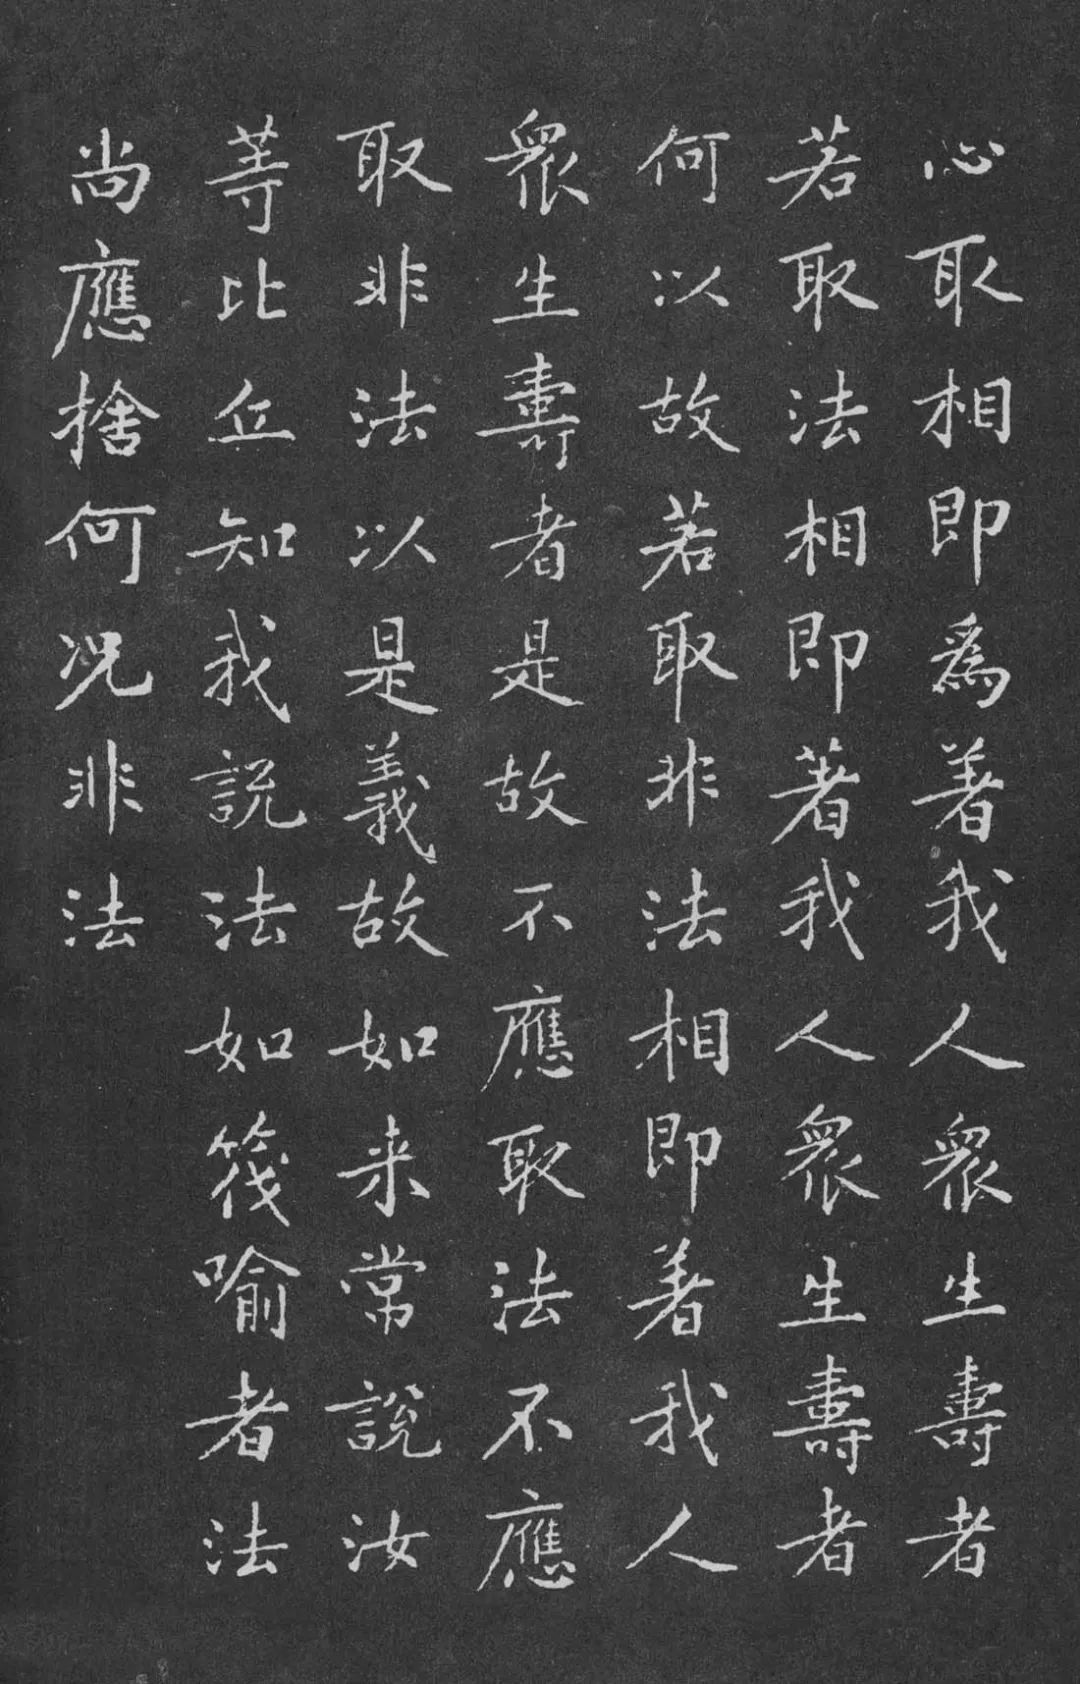 心取相即為著我人眾生壽者
若取法相即著我人眾生壽者
何以故若取非法相即著我人
眾生壽者是故不應取法不應
取非法以是義故如来常說汝
等比丘知我說法如筏喻者法
尚應捨何況非法